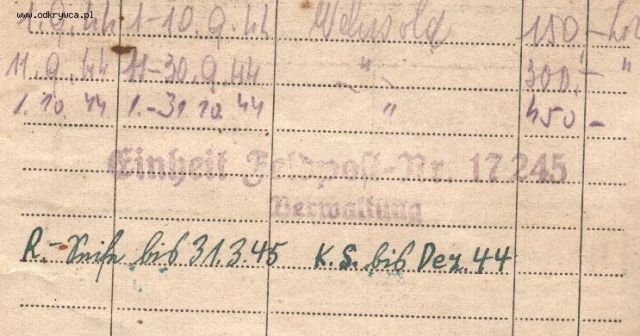 www.odkrywca.pl
1.9.44 1-10.9.44 Wehrsold 150,- Lit
11.9.44 11-30.9.44 " 300,- "
1.10.44 1.-31.10.44 " 450-
Einheit Feldpost-Nr. 17245
Verwaltung
R.- bis 31.3.45 K.S. bis Dez. 44